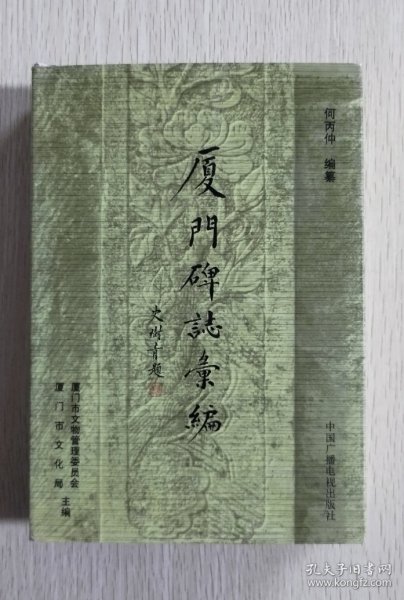 何丙仲 编纂
厦門碑誌彙編
史樹青題
厦门市文物管理委员会
厦门市文化局
主编
中国广播电视出版社
孔夫子旧书网
www.kongfz.com